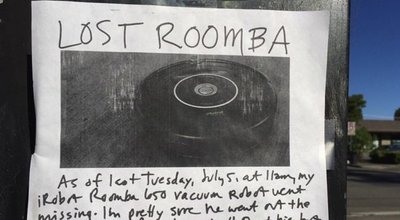 LOST ROOMBA
As of last Tuesday, July 5. at 11am, my
iRobot Roomba 650 vacuum robot went
missing. Im pretty sure he went out the